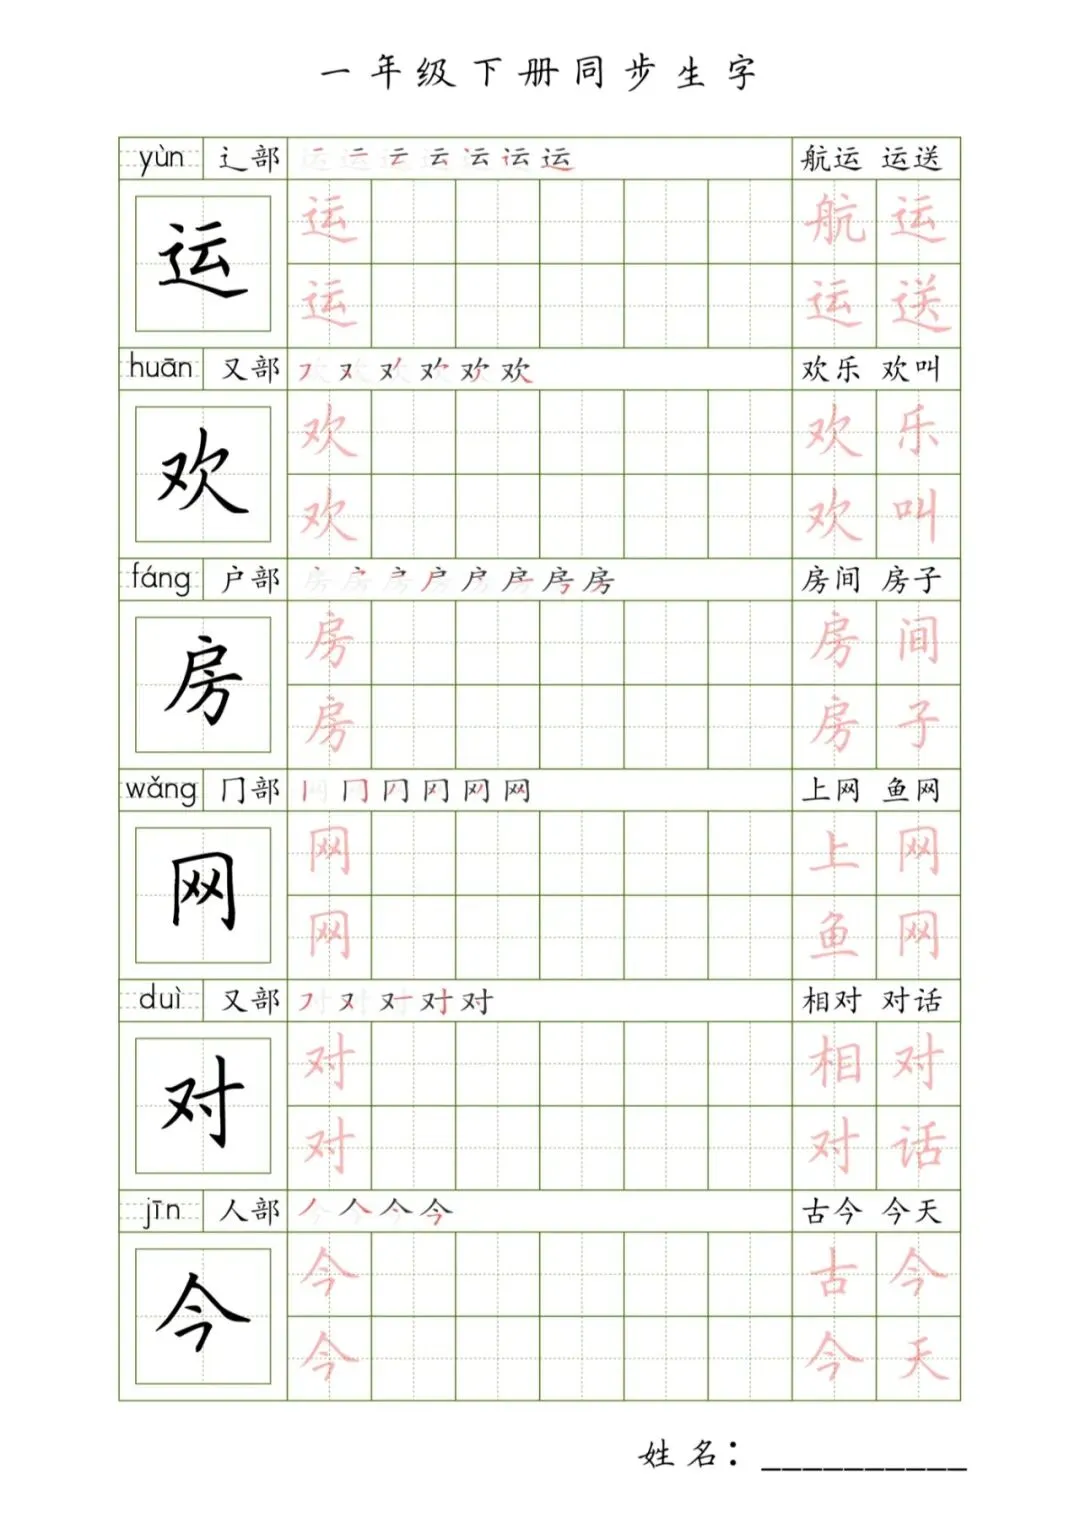 一年级下册同步生字
yùn 辶部 运 运 运 运 运 运 运 航运 运送
运 运 航 运
运 运 送
huān 又部 欢 欢 欢 欢 欢 欢 欢乐 欢叫
欢 欢 欢 乐
欢 欢 叫
fáng 户部 房 房 房 房 房 房 房 房 房间 房子
房 房 房 间
房 房 子
wǎng 冂部 网 网 网 网 网 网 上网 鱼网
网 网 上 网
网 鱼 网
duì 又部 对 对 对 对 对 相对 对话
对 对 相 对
对 对 话
jīn 人部 今 今 今 今 古今 今天
今 今 古 今
今 今 天
姓名：__________